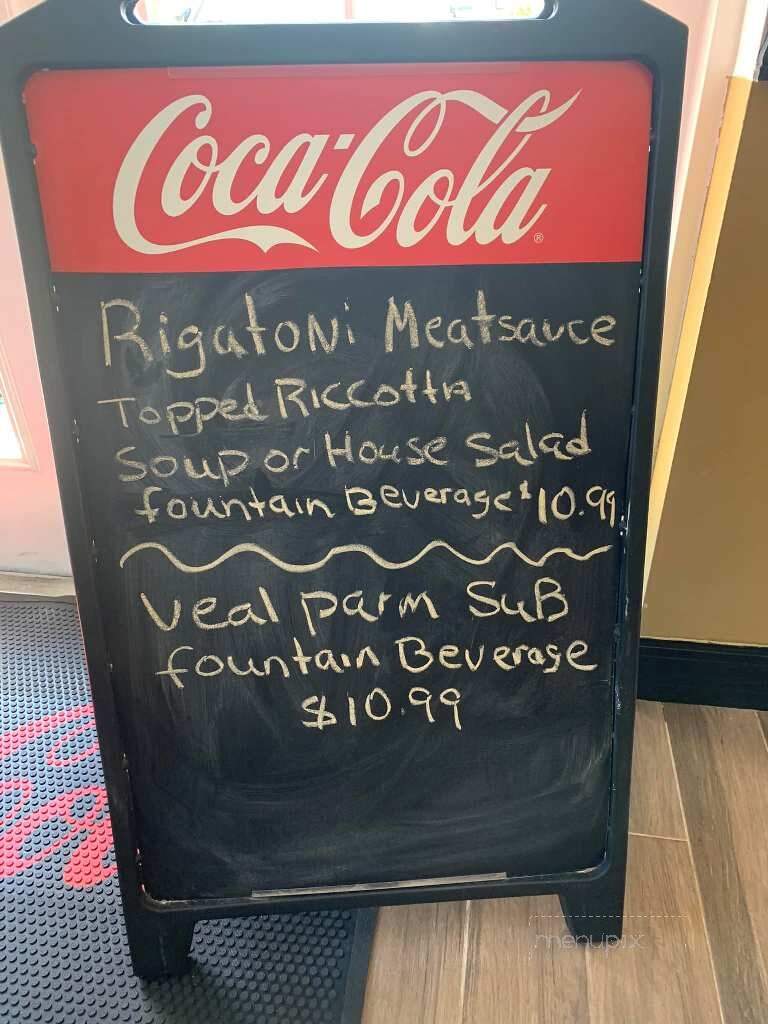 Coca-Cola®
Rigatoni Meatsauce
Topped Riccotta
Soup or House Salad
fountain Beverage $10.99
Veal parm SuB
fountain Beverage
$10.99
menupix